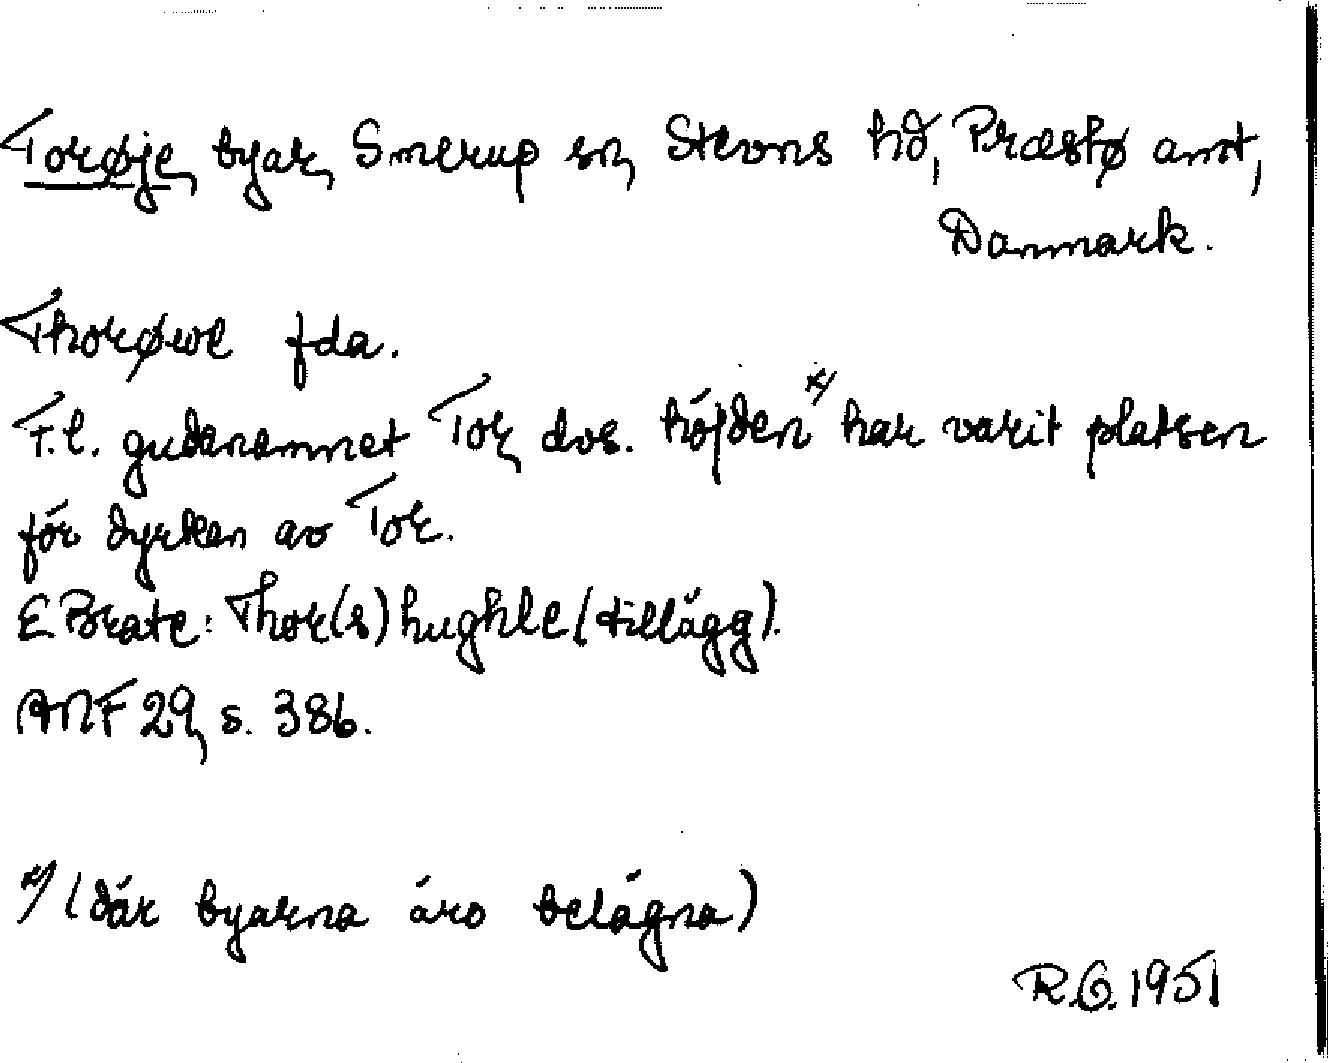 Torøje, byar, Smerup sn, Stevns hd, Præstø amt,
Danmark.
Thorøwe fda.
T.l. gudanamnet Tor, dvs. höjden x) har varit platsen
för dyrkan av Tor.
E Brate: Thor(s)hughle (tillägg).
ANF 29, s. 386.
x) (där byarna äro belägna)
R.G. 1951